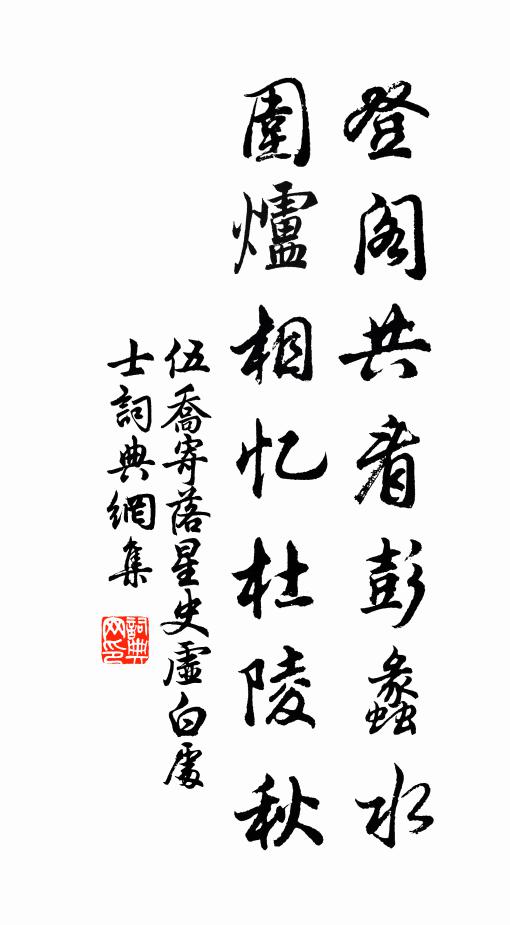 登阁共看彭蠡水
圍爐相忆杜陵秋
伍喬寄落星史虛白處
士詞典網集
詞典網印